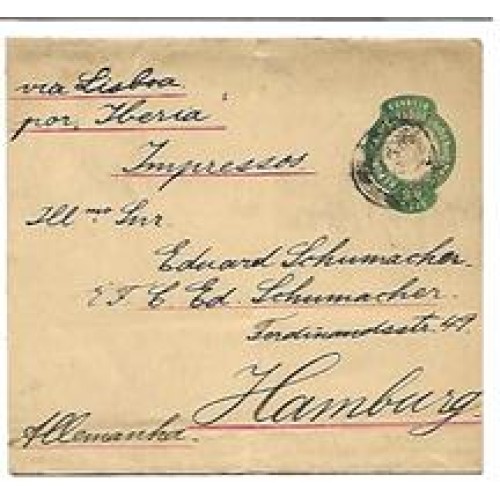 via Lisboa
por, Iberia
Impressos
Ill mo Snr.
Eduard Schumacher.
Ed. Schumacher.
Ferdinandsstr. 49.
Hamburg.
Allemanha.